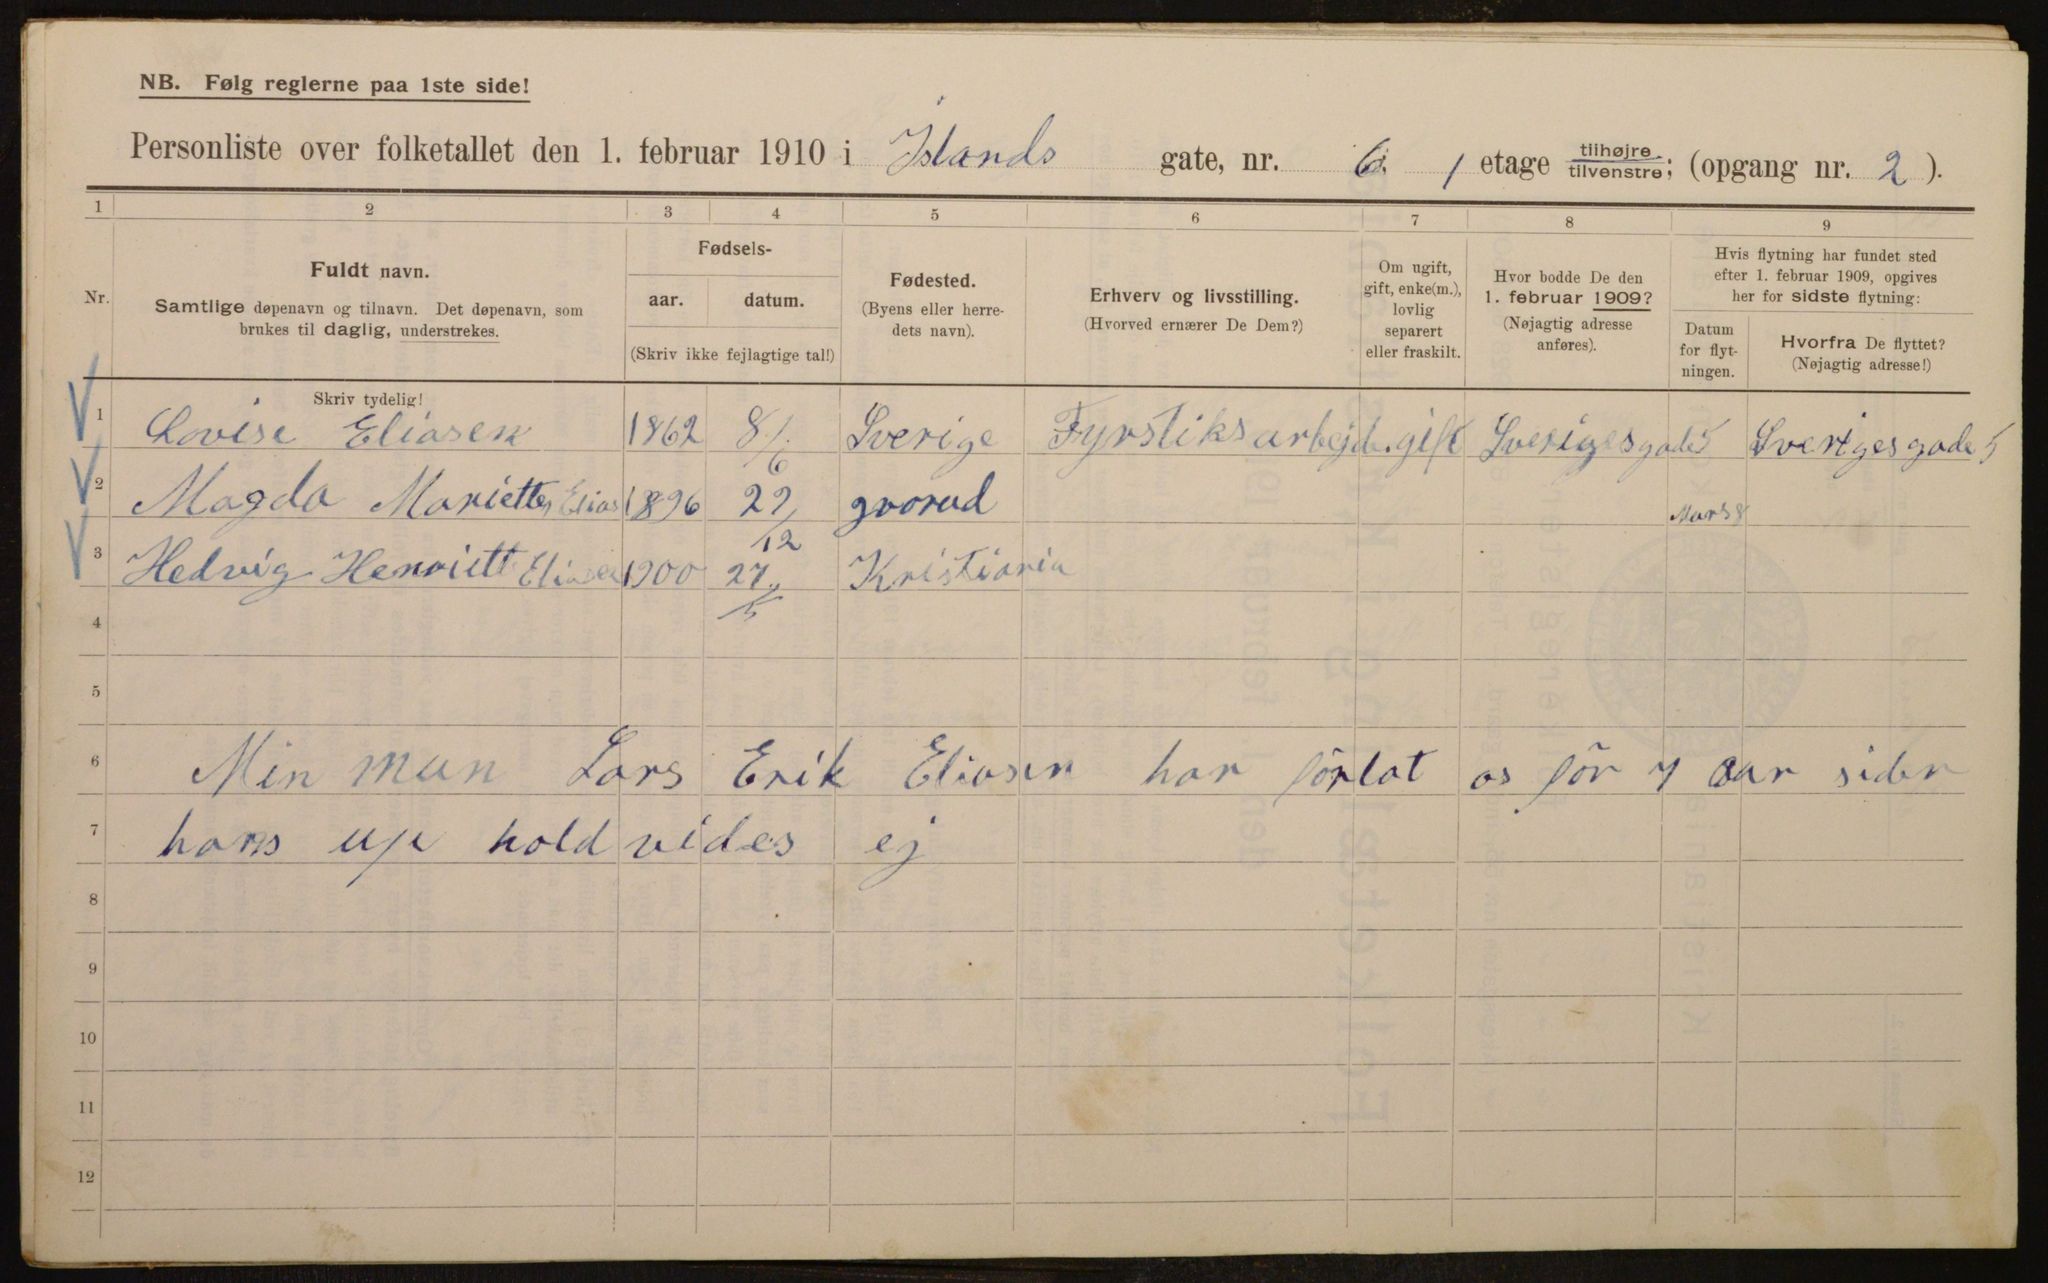 NB. Følg reglerne paa 1ste side!
Personliste over folketallet den 1. februar 1910 i Islands gate, nr. 6. 1 etage tilhøjre/tilvenstre; (opgang nr. 2).
1 2 3 4 5 6 7 8 9
Nr. Fuldt navn. Samtlige døpenavn og tilnavn. Det døpenavn, som brukes til daglig, understrekes.
Fødsels-
aar. datum.
(Skriv ikke fejlagtige tal!)
Fødested.
(Byens eller herredets navn).
Erhverv og livsstilling.
(Hvorved ernærer De Dem?)
Om ugift, gift, enke(m.), lovlig separert eller fraskilt.
Hvor bodde De den 1. februar 1909?
(Nøjagtig adresse anføres).
Hvis flytning har fundet sted efter 1. februar 1909, opgives her for sidste flytning:
Datum for flytningen.
Hvorfra De flyttet?
(Nøjagtig adresse!)
Skriv tydelig!
1 Lovise Eliasen 1862 8/6 Sverige Fyrstiksarbejd. gift Sverigesgade 5 Sverigesgade 5
2 Magda Mariette Elias 1896 22/12 grorud Mars 8
3 Hedvig Henriett Eliasen 1900 27/5 Kristiania
4
5
6 Min man Lars Erik Eliasen har förlat os för 7 aar siden
7 hans up hold vides ej
8
9
10
11
12